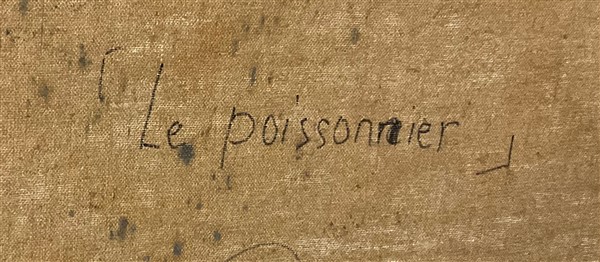 「Le poissonnier」